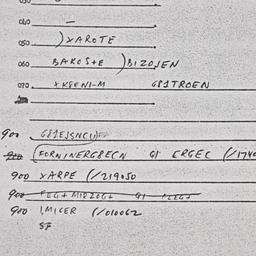 040. —
050. ) XAROTE
060. BAKOS+E ) BIZOJEN
070. XKGENI-M G81TROEN
900 G81EJSNCU
900 (FORNINERG8ECN GI ERGEC (/1740
900 XARPE (/219050
900 GI
900 IMIGER (/010062
SF